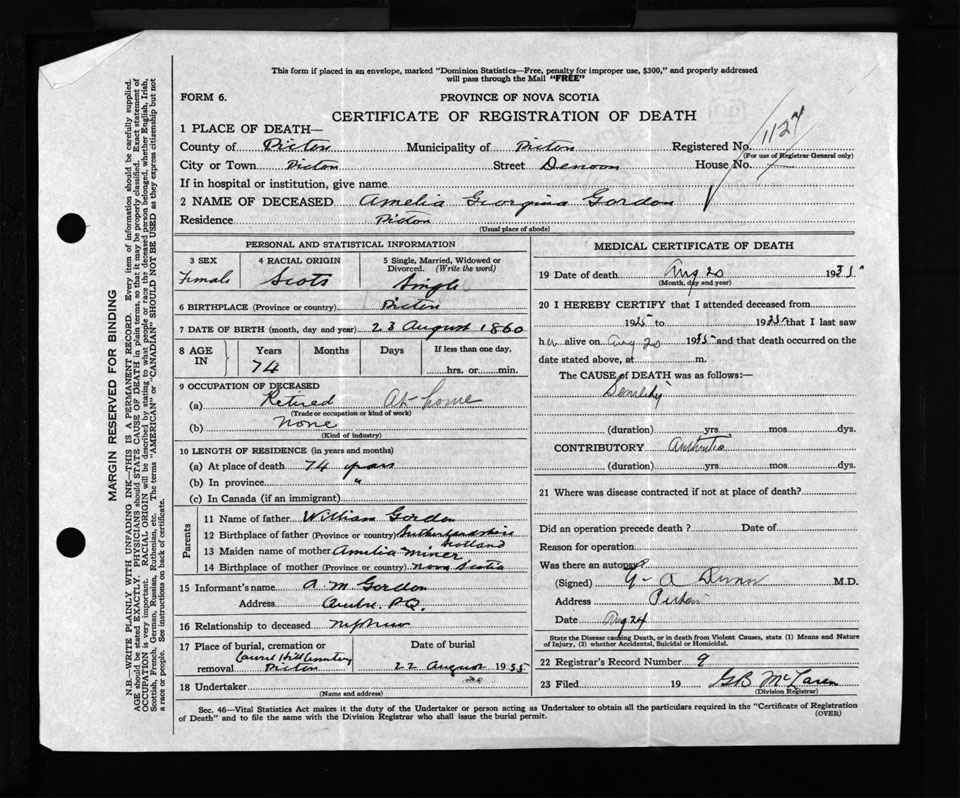 This form if placed in an envelope, marked "Dominion Statistics—Free, penalty for improper use, $300," and properly addressed
will pass through the Mail "FREE"
FORM 6. PROVINCE OF NOVA SCOTIA
CERTIFICATE OF REGISTRATION OF DEATH
1 PLACE OF DEATH—
County of Pictou Municipality of Pictou Registered No. 1127
(For use of Registrar General only)
City or Town Pictou Street Denoon House No.
If in hospital or institution, give name
2 NAME OF DECEASED Amelia Georgina Gordon
Residence Pictou
(Usual place of abode)
PERSONAL AND STATISTICAL INFORMATION
3 SEX 4 RACIAL ORIGIN 5 Single, Married, Widowed or
Divorced. (Write the word)
Female Scots Single
6 BIRTHPLACE (Province or country) Pictou
7 DATE OF BIRTH (month, day and year) 23 August 1860
8 AGE IN Years Months Days If less than one day,
74 hrs. or min.
9 OCCUPATION OF DECEASED
(a) Retired At home
(Trade or occupation or kind of work)
(b) none
(Kind of industry)
10 LENGTH OF RESIDENCE (in years and months)
(a) At place of death 74 years
(b) In province "
(c) In Canada (if an immigrant)
Parents
11 Name of father William Gordon
12 Birthplace of father (Province or country) Sutherlandshire
Scotland
13 Maiden name of mother Amelia Miner
14 Birthplace of mother (Province or country) Nova Scotia
15 Informant's name A. M. Gordon
Address P.Q.
16 Relationship to deceased nephew
17 Place of burial, cremation or Date of burial
Laurel Hill Cemetery
removal Pictou 22 August 1935
18 Undertaker
(Name and address)
MEDICAL CERTIFICATE OF DEATH
19 Date of death Aug 20 1935
(Month, day and year)
20 I HEREBY CERTIFY that I attended deceased from
1925 to 1935 that I last saw
her alive on Aug 20 1935 and that death occurred on the
date stated above, at m.
The CAUSE of DEATH was as follows:—
(duration) yrs. mos. dys.
CONTRIBUTORY
(duration) yrs. mos. dys.
21 Where was disease contracted if not at place of death?
Did an operation precede death? Date of
Reason for operation
Was there an autopsy?
(Signed) G A Dunn M.D.
Address Pictou
Date Aug 24
State the Disease causing Death, or in death from Violent Causes, state (1) Means and Nature
of Injury, (2) whether Accidental, Suicidal or Homicidal.
22 Registrar's Record Number 9
23 Filed 19 G B McLaren
(Division Registrar)
Sec. 46—Vital Statistics Act makes it the duty of the Undertaker or person acting as Undertaker to obtain all the particulars required in the "Certificate of Registration
of Death" and to file the same with the Division Registrar who shall issue the burial permit. (OVER)
MARGIN RESERVED FOR BINDING
N.B.—WRITE PLAINLY WITH UNFADING INK—THIS IS A PERMANENT RECORD. Every item of information should be carefully supplied.
AGE should be stated EXACTLY. PHYSICIANS should STATE CAUSE OF DEATH in plain terms, so that it may be properly classified. Exact statement of
OCCUPATION is very important. RACIAL ORIGIN will be described by stating to what people or race the deceased person belonged, whether English, Irish,
Scottish, French, German, Russian, Ruthenian, etc. The terms "AMERICAN" or "CANADIAN" SHOULD NOT BE USED as they express citizenship but not
a race or people. See instructions on back of certificate.